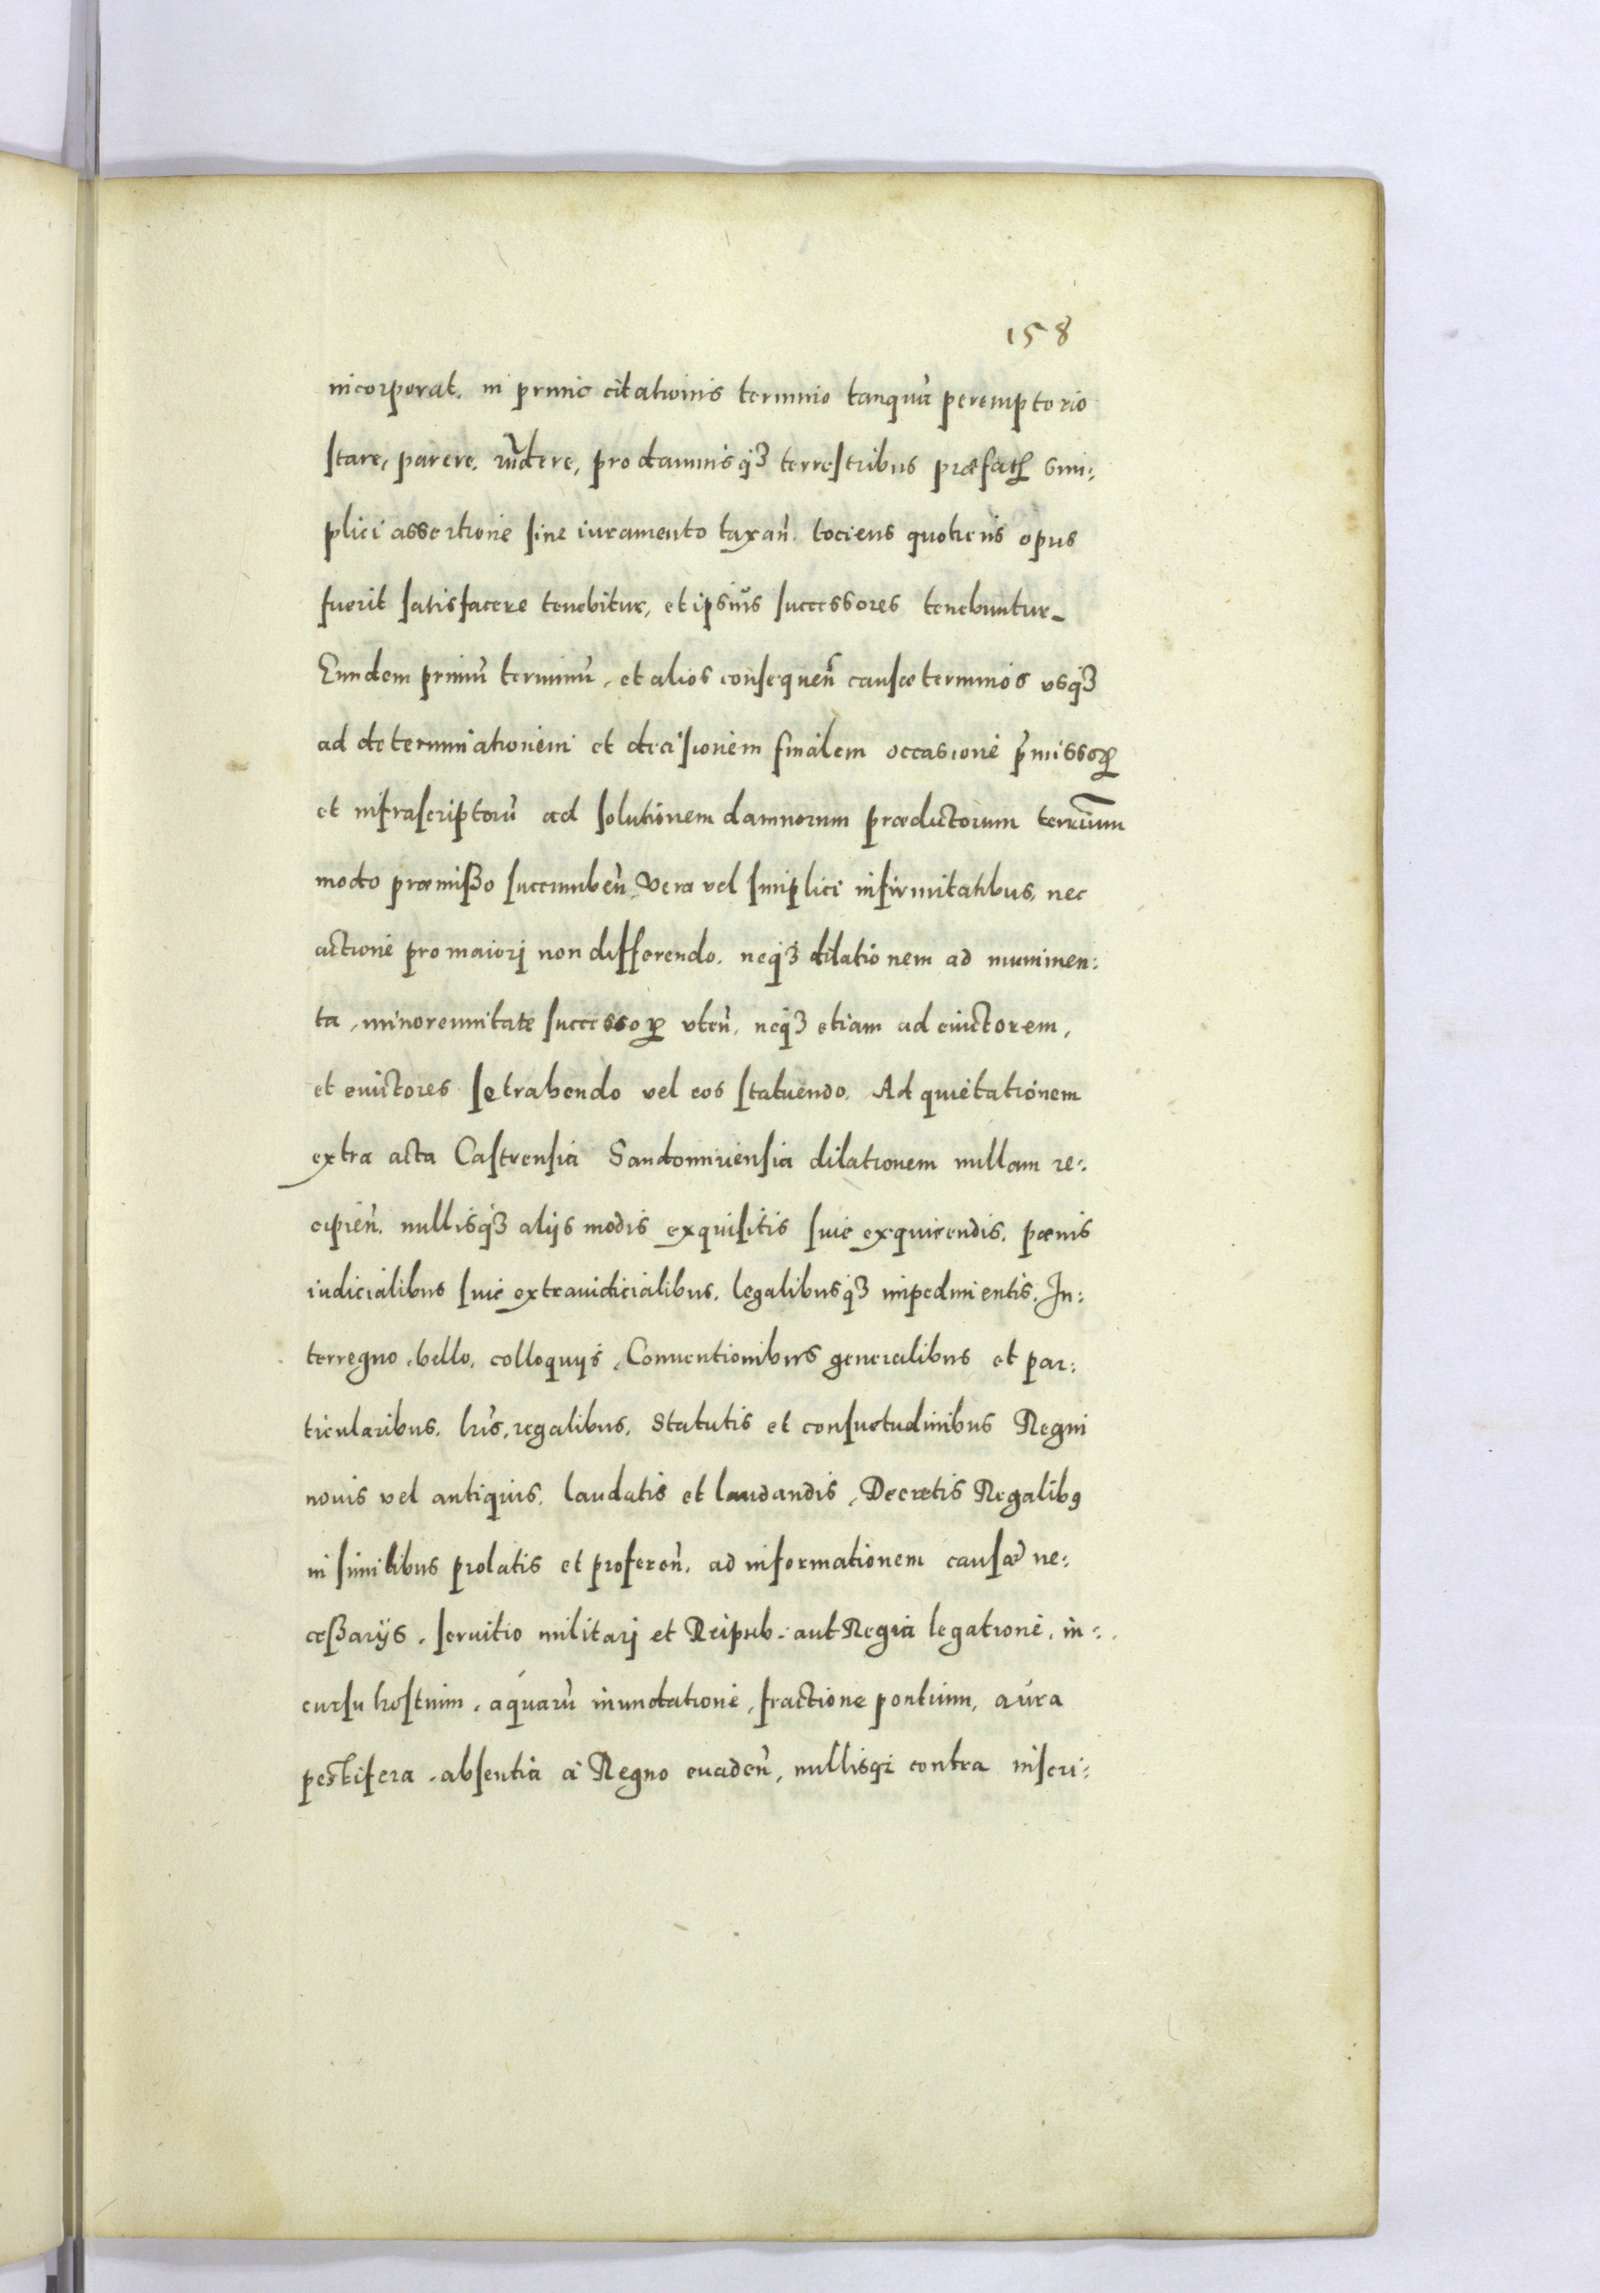 158
incorporat. in primo citationis termino tanquā peremptorio
stare, parere, rn̄dere, pro damnisq3 terrestribus præfatꝝ sim:
plici assertione sine iuramento taxan̄. tociens quotiens opus
fuerit satisfacere tenebitur, et ipsius successores tenebuntur_
Eundem primū terminū, et alios consequen̄ causæ terminos vsq3
ad determinationem et decisionem finalem occasione p̄missoꝝ
et infrascriptorū ad solutionem damnorum prædictorum terrūm
modo præmißo succumben̄, Vera vel simplici infirmitatibus, nec
actione pro maiorj non differendo. neq3 dilationem ad munimen:
ta, minorennitate successoꝝ vten̄, neq3 etiam ad euictorem,
et euictores se trahendo vel eos statuendo. Ad quietationem
extra acta Castrensia Sandomiriensia dilationem nullam re:
cipien̄. nullisq3 alijs modis exquisitis siue exquirendis. pænis
iudicialibus siue extraiudicialibus. legalibusq3 impedimentis. In:
terregno, bello, colloquijs, Conuentionibus generalibus et par:
ticularibus. lrīs, regalibus, statutis et consuetudinibus Regni
nouis vel antiquis, laudatis et laudandis, Decretis Regalibꝰ
in similibus prolatis et proferen̄. ad informationem causaꝝ ne:
ceßarijs, seruitio militarj et Reipub. aut Regia legatione, in:
cursu hostium, aquarū inundatione, fractione pontium, aura
pestifera, absentia à Regno euaden̄, nullisq3 contra inscri: